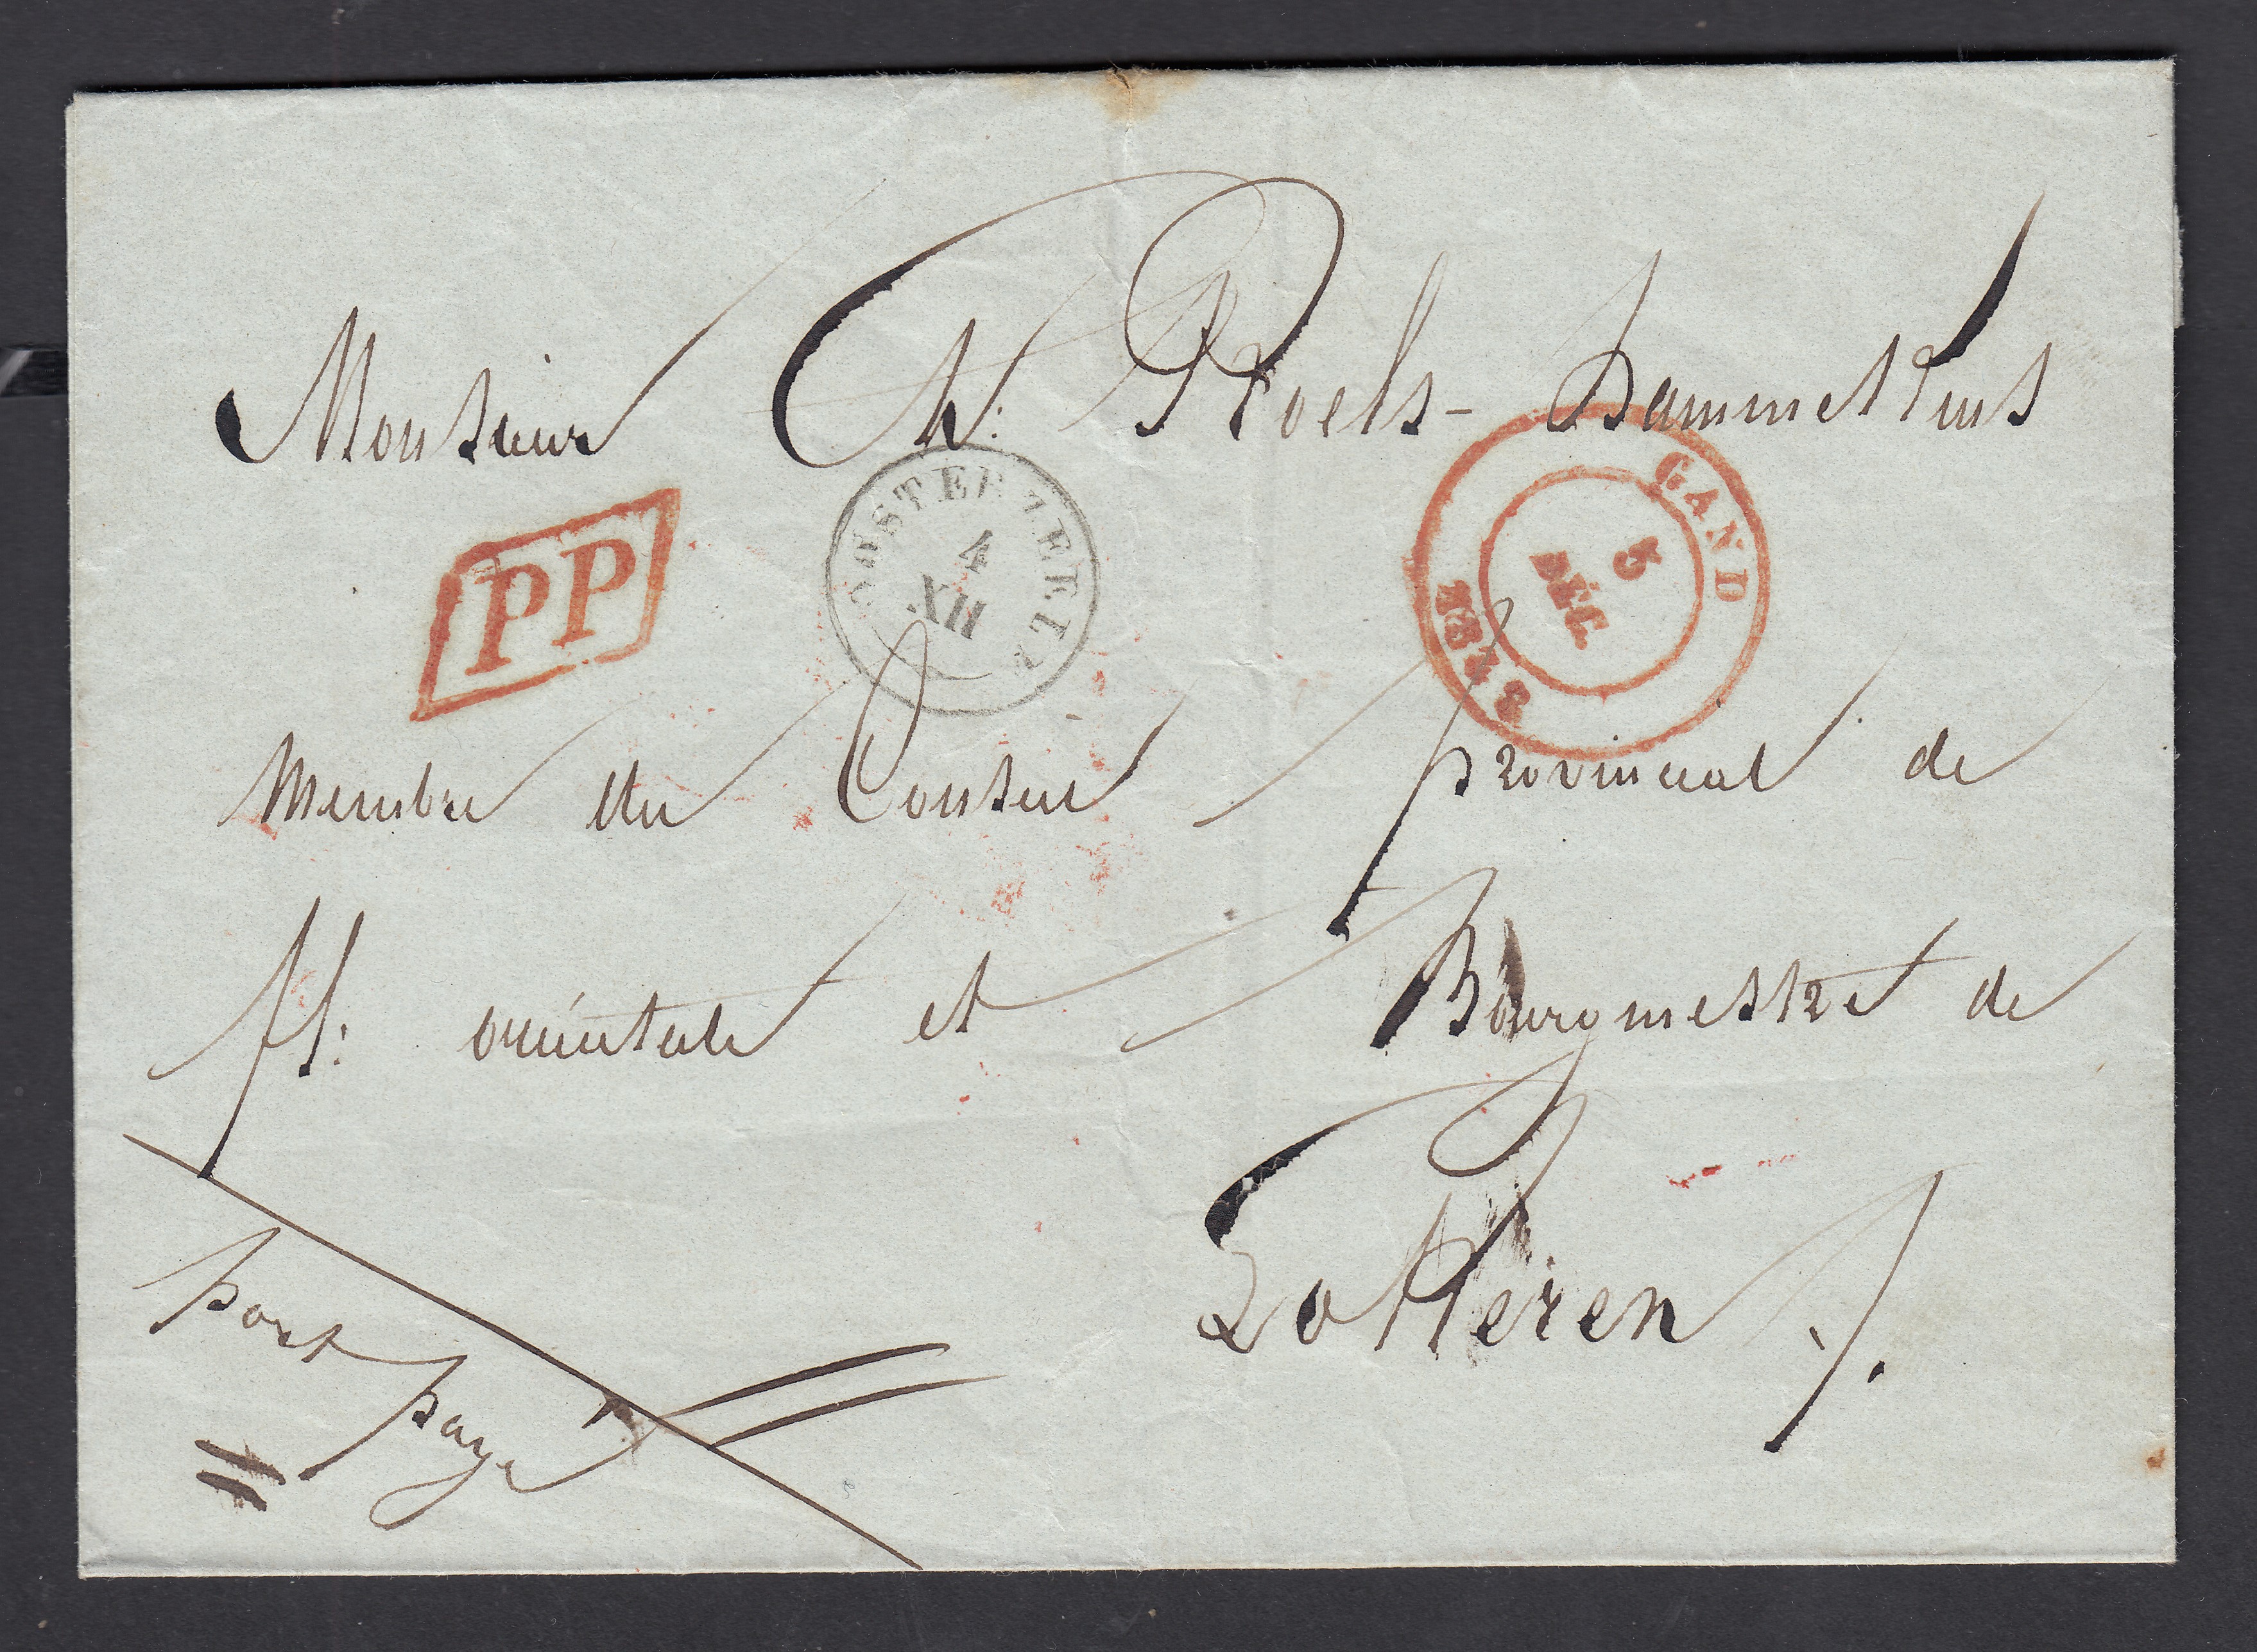 Monsieur Ch: Roels-
PP
OOSTERZEELE
4
XII
GAND
5
DÉC.
1848
Membre du Conseil provincial de
fl: orientale et Bourgmestre de
port
payé